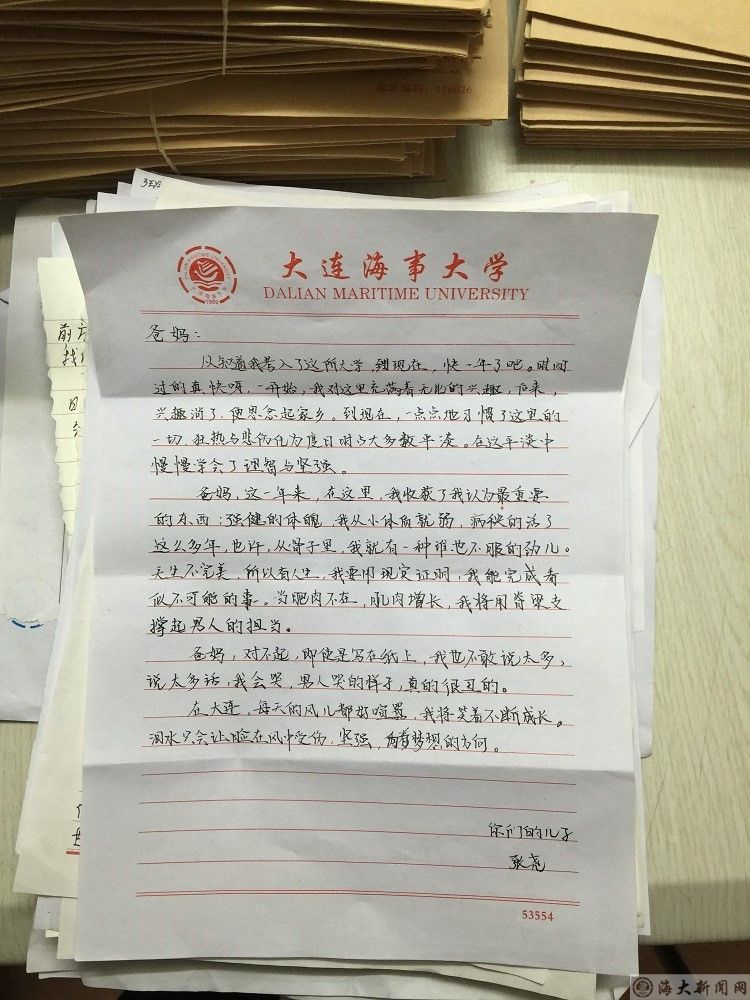 邮政编码：116026
大连海事大学
DALIAN MARITIME UNIVERSITY
爸妈：
从知道我考入了这所大学，到现在，快一年了吧。时间
过的真快呀，一开始，我对这里充满着无比的兴趣，后来，
兴趣消了，便思念起家乡。到现在，一点点地习惯了这里的
一切，狂热与悲伤化为度日时占大多数平淡。在这平淡中
慢慢学会了理智与坚强。
爸妈，这一年来，在这里，我收获了我认为最重要
的东西：强健的体魄，我从小体质就弱，病秧的活了
这么多年，也许，从骨子里，我就有一种谁也不服的劲儿。
天生不完美，所以有人生，我要用现实证明，我能完成看
似不可能的事。当肥肉不在，肌肉增长，我将用脊梁支
撑起男人的担当。
爸妈，对不起，即使是写在纸上，我也不敢说太多，
说太多话，我会哭，男人哭的样子，真的很丑的。
在大连，每天的风儿都好喧嚣，我将笑着不断成长。
泪水只会让脸在风中受伤，坚强，向着梦想的方向。
你们的儿子
张尧
53554
海大新闻网